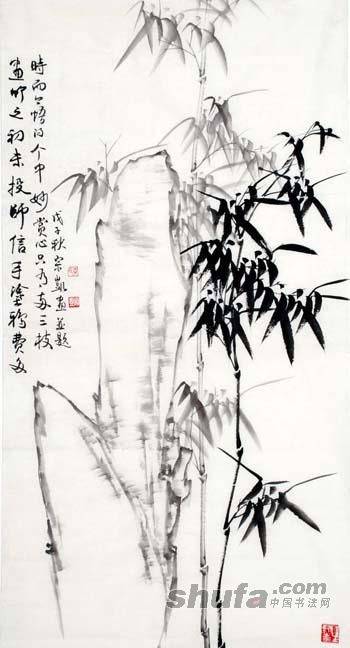 畫竹之初未投師信手塗鴉費多
時而今悟得个中妙賞心只有兩三枝
戊子秋宗凱畫並題
shufa.com
中国书法网